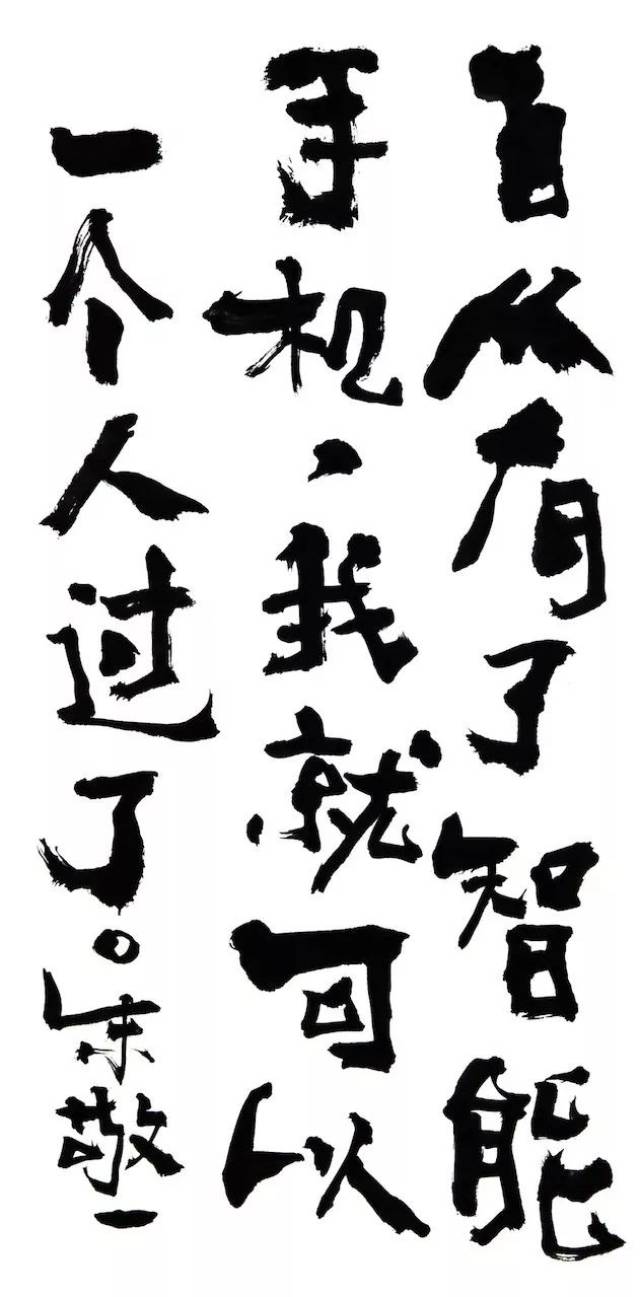 自从有了智能
手机，我就可以
一个人过了。朱敬一